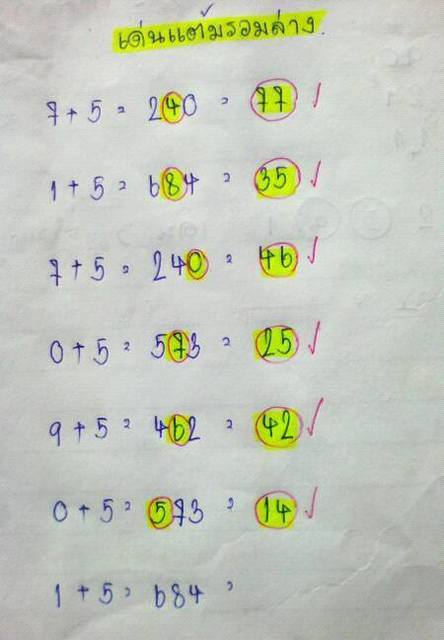 เด่นแต้มรวมล่าง.
7+5 = 240 = 77 ✓
1+5 = 684 = 35 ✓
7+5 = 240 = 46 ✓
0+5 = 573 = 25 ✓
9+5 = 462 = 42 ✓
0+5 = 573 = 14 ✓
1+5 = 684 =